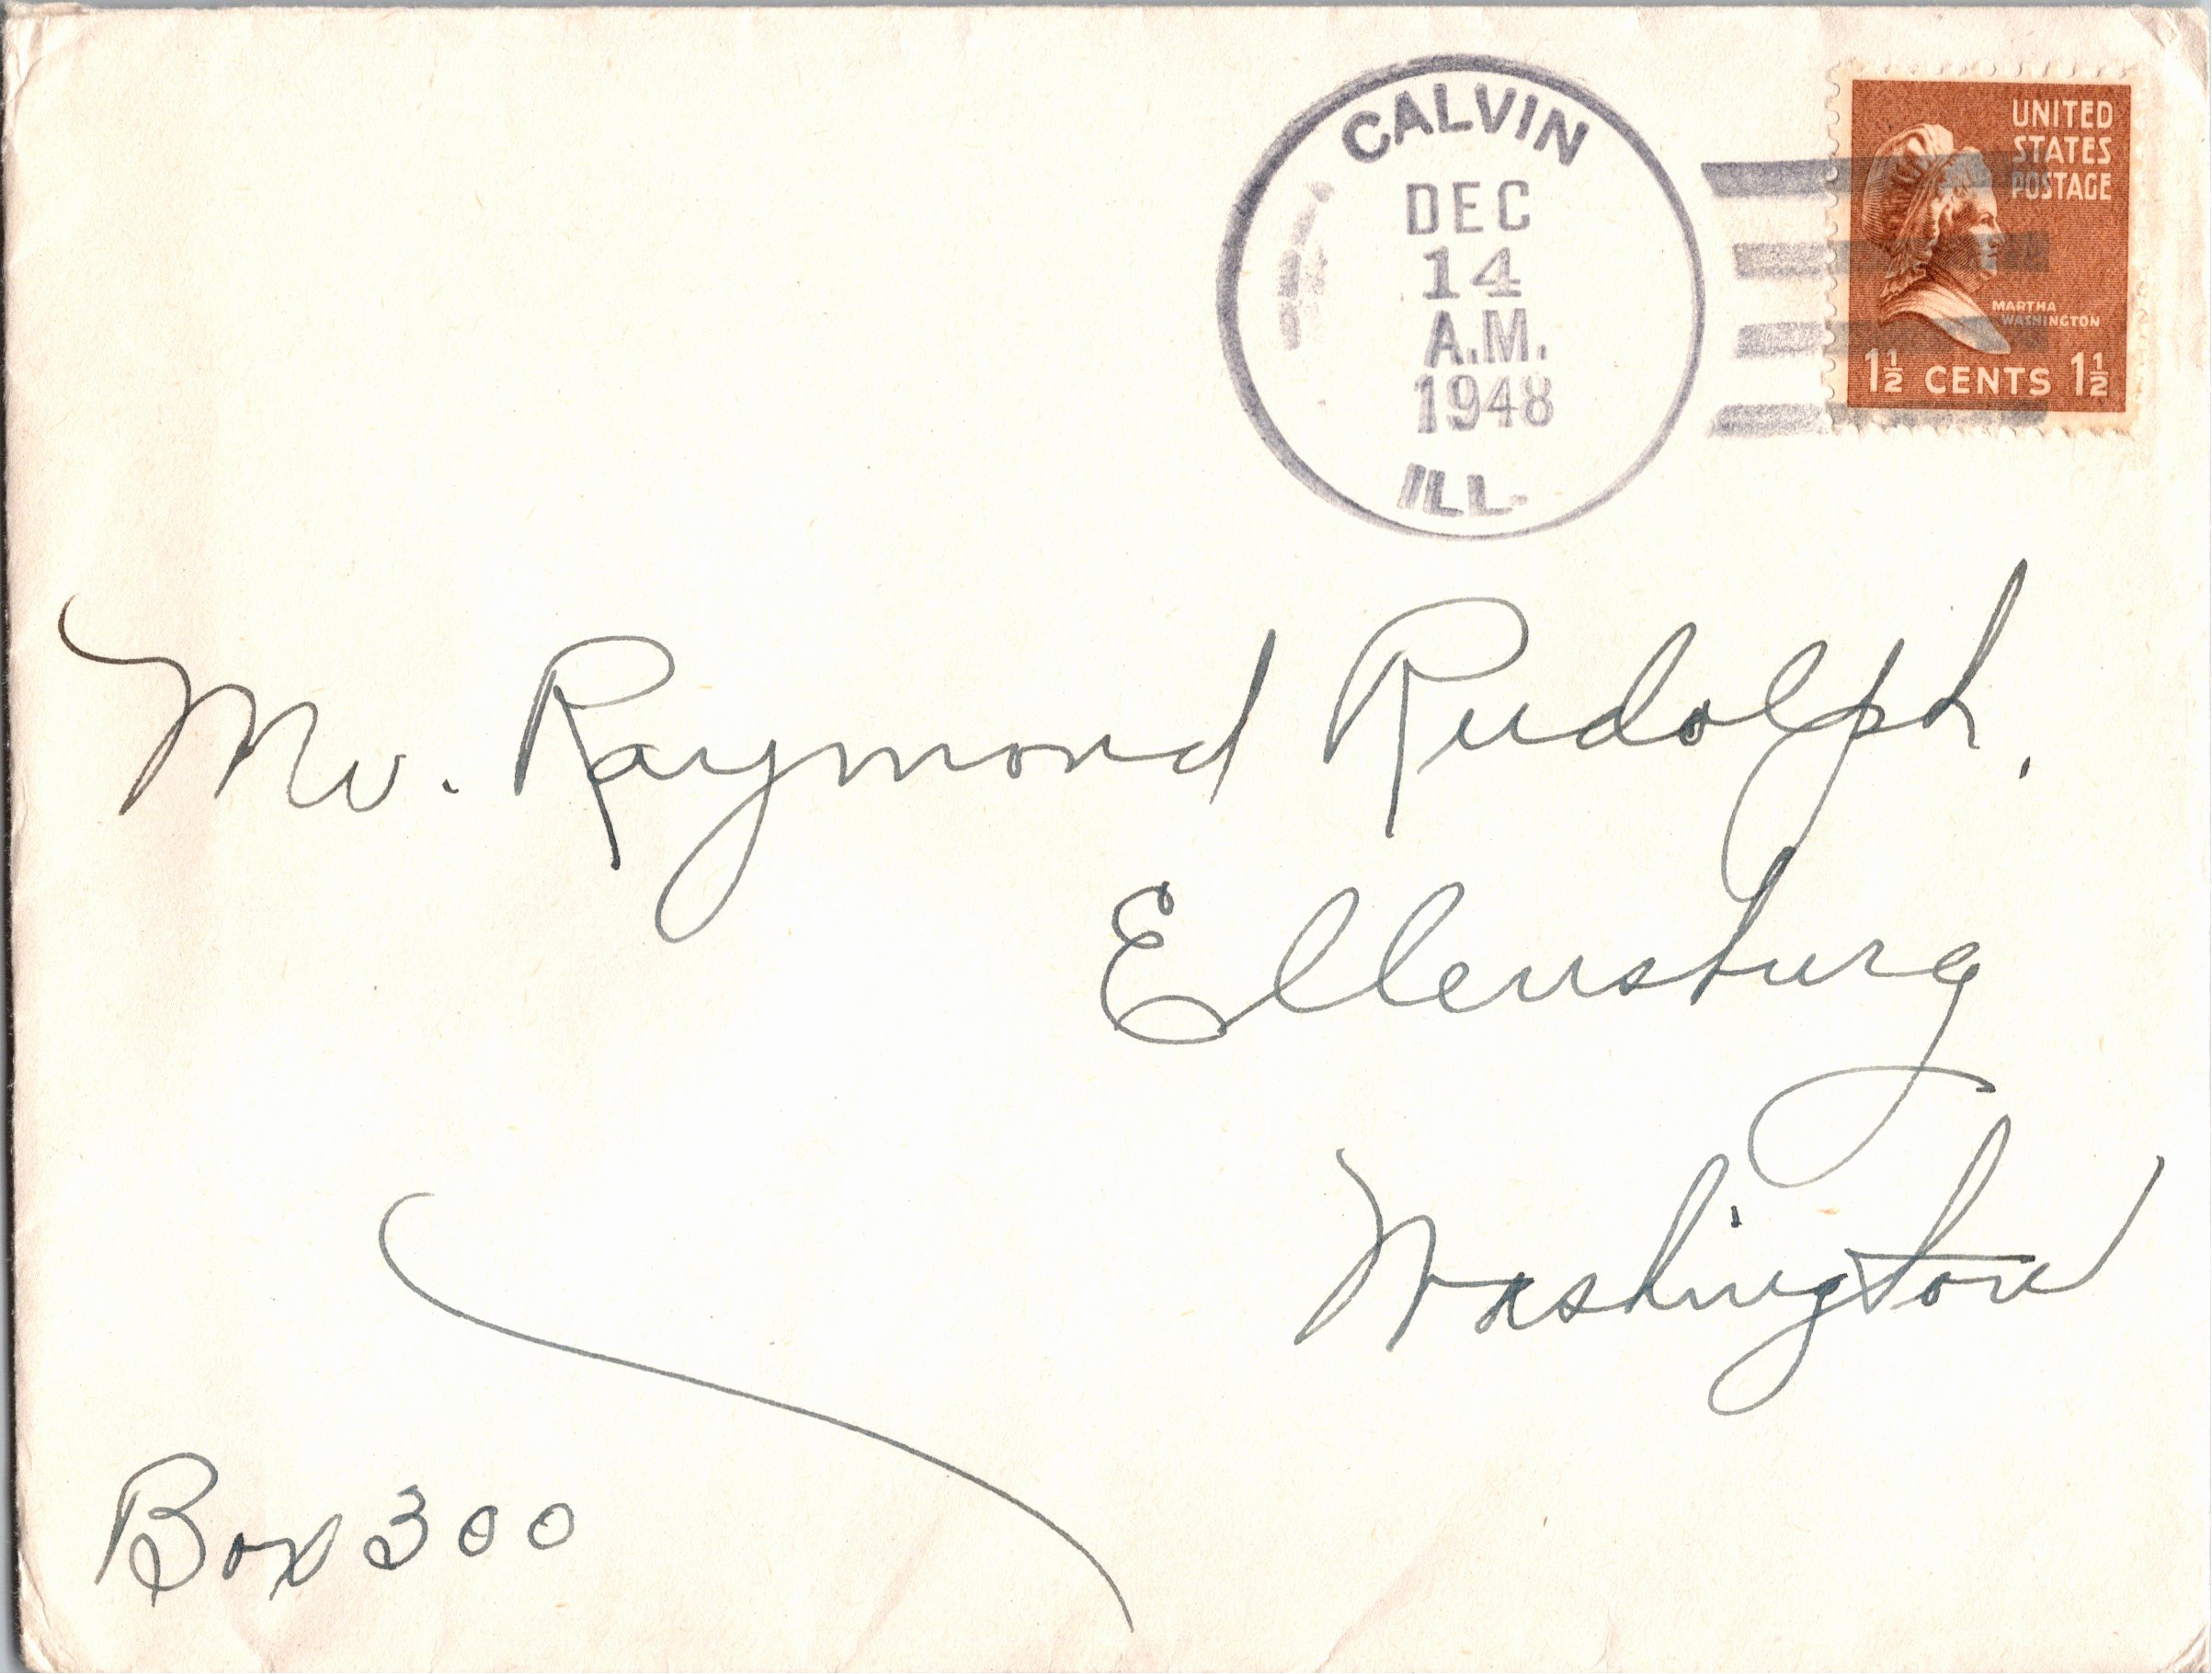 CALVIN
DEC
14
A.M.
1948
ILL.
UNITED
STATES
POSTAGE
MARTHA
WASHINGTON
1½ CENTS 1½
Mr. Raymond Rudolph.
Ellensburg
Washington
Box 300